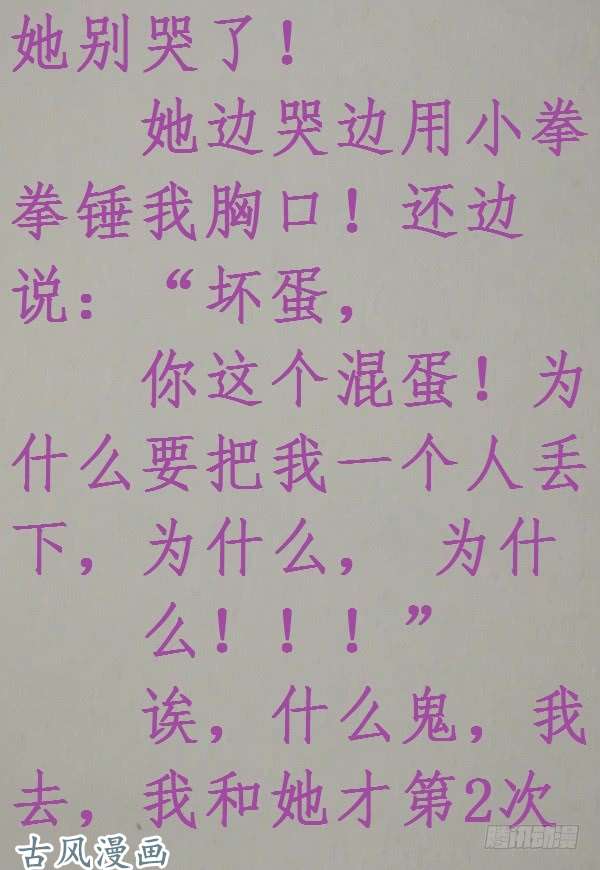 她别哭了！
她边哭边用小拳
拳锤我胸口！还边
说：“坏蛋，
你这个混蛋！为
什么要把我一个人丢
下，为什么， 为什
么！！！”
诶，什么鬼，我
去，我和她才第2次
古风漫画
腾讯动漫